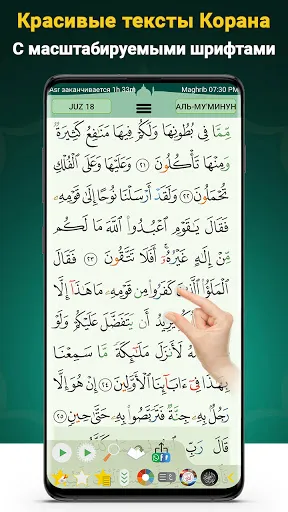 Красивые тексты Корана
С масштабируемыми шрифтами
Asr заканчивается 1h 33m Maghrib 07:30 PM
JUZ 18 АЛЬ-МУ'МИНУН
مِّمَّا فِي بُطُونِهَا وَلَكُمْ فِيهَا مَنَٰفِعُ كَثِيرَةٌ
وَمِنْهَا تَأْكُلُونَ ٢١ وَعَلَيْهَا وَعَلَى ٱلْفُلْكِ
تُحْمَلُونَ ٢٢ وَلَقَدْ أَرْسَلْنَا نُوحًا إِلَىٰ قَوْمِهِۦ
فَقَالَ يَٰقَوْمِ ٱعْبُدُوا۟ ٱللَّهَ مَا لَكُم
مِّنْ إِلَٰهٍ غَيْرُهُۥٓ ۖ أَفَلَا تَتَّقُونَ ٢٣ فَقَالَ
ٱلْمَلَؤُا۟ ٱلَّذِينَ كَفَرُوا۟ مِن قَوْمِهِۦ مَا هَٰذَآ إِلَّا
يُرِيدُ أَن يَتَفَضَّلَ عَلَيْكُمْ وَلَوْ
لَأَنزَلَ مَلَٰٓئِكَةً مَّا سَمِعْنَا
بِهَٰذَا فِىٓ ءَابَآئِنَا ٱلْأَوَّلِينَ ٢٤ إِنْ هُوَ إِلَّا
رَجُلٌۢ بِهِۦ جِنَّةٌ فَتَرَبَّصُوا۟ بِهِۦ حَتَّىٰ حِينٍ ٢٥
قَالَ رَبِّ